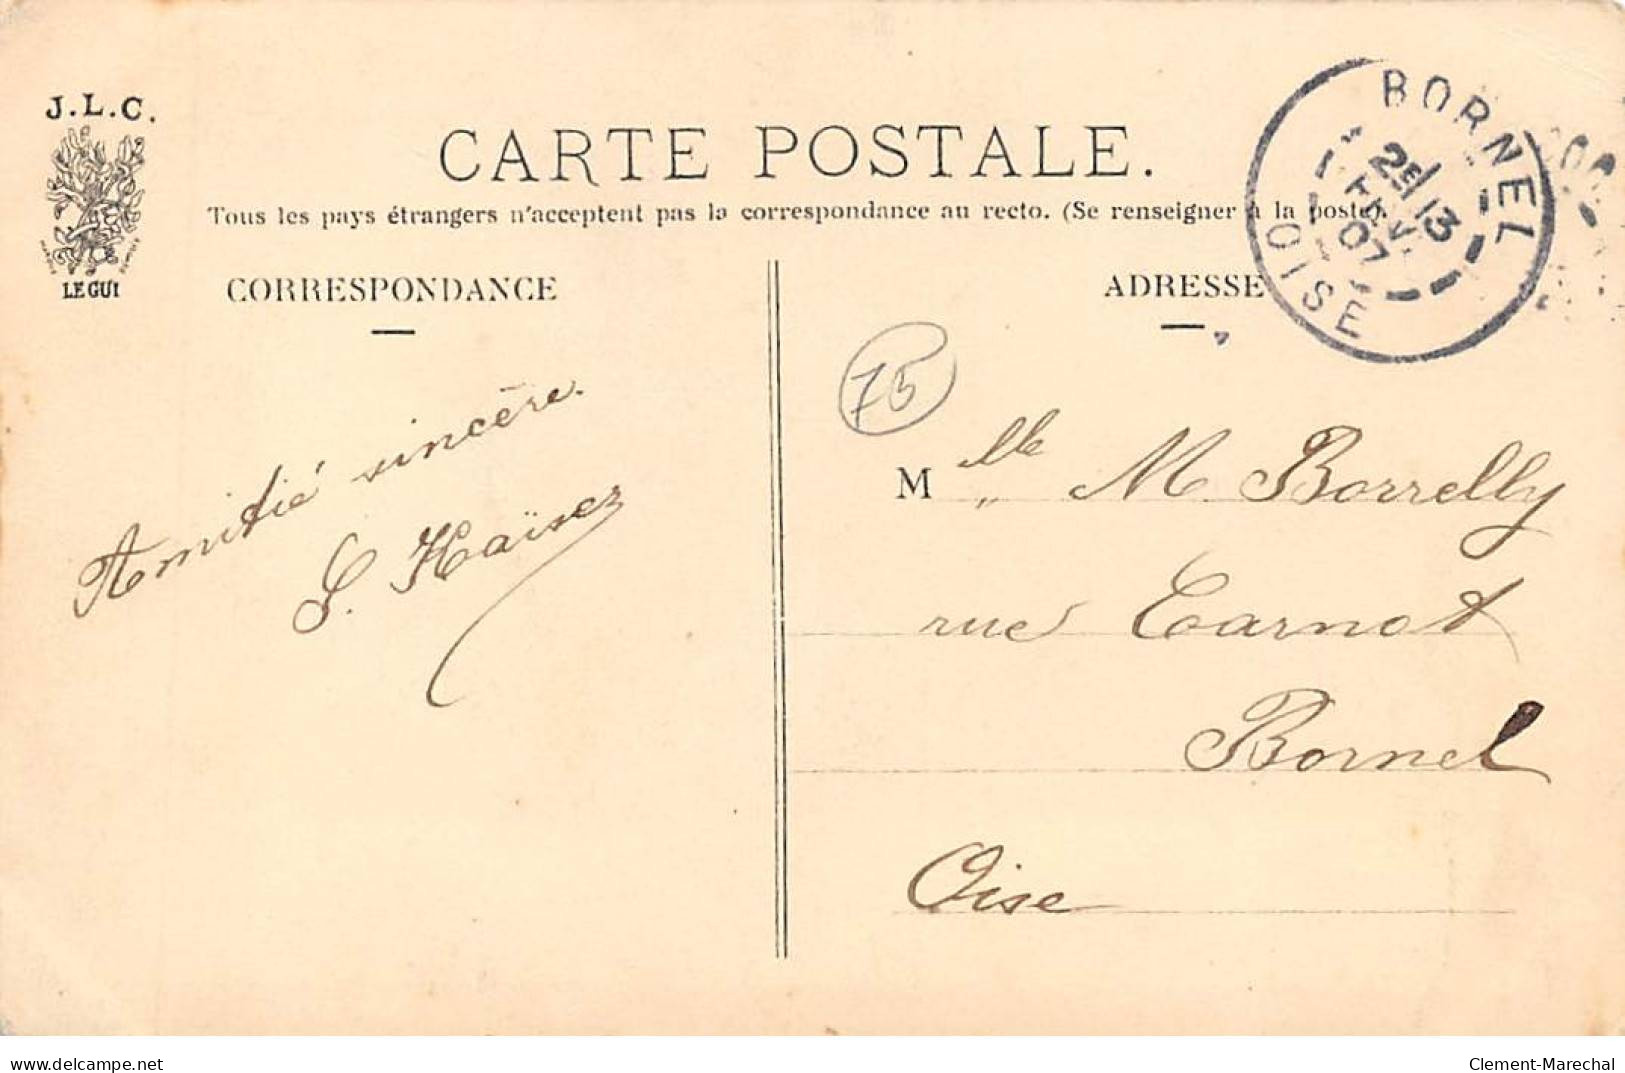 J.L.C.
LE GUI
CARTE POSTALE.
Tous les pays étrangers n'acceptent pas la correspondance au recto. (Se renseigner à la poste).
CORRESPONDANCE
ADRESSE
BORNEL
2E/13
FEV.
07
OISE
75
Amitié sincère.
Mlle M. Borrelly
rue Carnot
Bornel
Oise
delcampe.net
Clement-Marechal